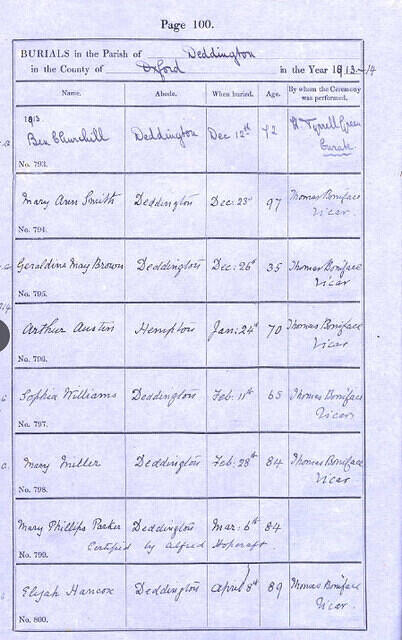 Page 100.
BURIALS in the Parish of Deddington
in the County of Oxford in the Year 1913-14
Name. Abode. When buried. Age. By whom the Ceremony was performed.
1913.
Ben Churchill Deddington Dec 12th 72 H. Tyrrell Green
Curate
No. 793.
Mary Ann Smith Deddington Dec: 23d 97 Thomas Boniface
Vicar.
No. 794.
Geraldine May Brown Deddington Dec: 26th 35 Thomas Boniface
Vicar
No. 795.
Arthur Austin Hempton Jan: 24th 70 Thomas Boniface
Vicar
No. 796.
Sophia Williams Deddington Feb: 11th 65 Thomas Boniface
Vicar
No. 797.
Mary Miller Deddington Feb: 28th 84 Thomas Boniface
Vicar
No. 798.
Mary Phillips Parker Deddington Mar: 6th 84
Certified by Alfred Hopcraft.
No. 799.
Elijah Hancox Deddington April 8th 89 Thomas Boniface
Vicar.
No. 800.